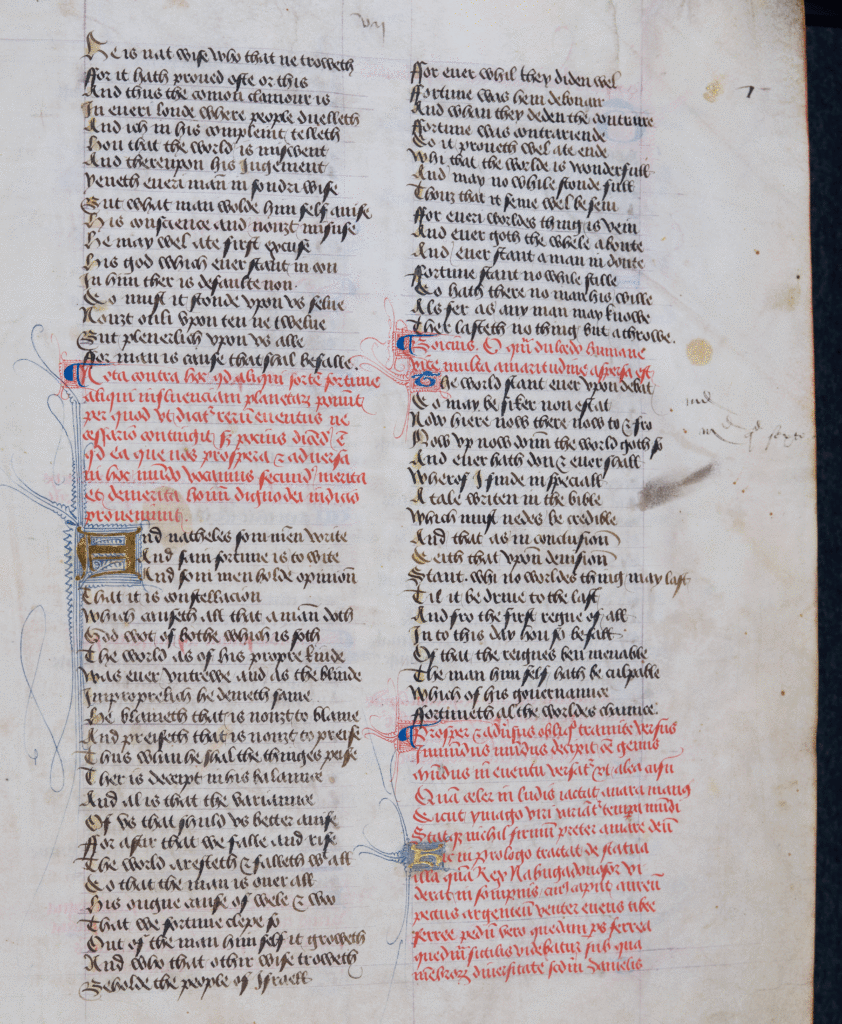 vij
He is nat wise who that ne troweth
ffor it hath proued ofte or this
And thus the comon clamour is
In eueri londe where people duelleth
And ich in his compleint telleth
Hou that the world is miswent
And thereupon his Jugement
yeueth eueri man in sondri wise
But what man wolde him self auise
His conscience and nouzt misuse
He may wel ate first excuse
His god which euer stant in oon
In him ther is defaulte non
So must it stonde vpon vs selue
Nouzt onli vpon ten ne twelue
But plenerlich vpon vs alle
ffor man is cause that shal befalle.
Nota contra hoc qd aliqui sorte fortune
aliqui influenciam planetarz ponut
per quod vt dicat rerum euentus ne
cessario contingit sz pocius dicend e
qd ea que nos prospera & aduersa
in hoc mundo vocamus secund merita
et demerita hom digno dei iudicio
proueniunt.
And natheles som men write
And sain fortune is to wite
And som men holde opinion
That it is constellacion
Which causeth all that a man doth
God wot of bothe which is soth
The world as of his propre kinde
Was euer vntrewe and as the blinde
Improprelich he demeth fame
He blameth that is nouzt to blame
And preiseth that is nouzt to preise
Thus whan he shal the thinges peise
Ther is deceipt in his balance
And al is that the variance
Of vs that should vs better auise
ffor aftir that we falle and rise
The world aresteth & falleth with all
So that the man is ouer all
His ougne cause of wele & wo
That we fortune clepe so
Out of the man him self it groweth
And who that othir wise troweth
Beholde the people of Israell
ffor euer whil they diden wel
ffortune was hem debonair
And whan they deden the contraire
ffortune was contrariende
So it proueth wel ate ende
Whi that the worlde is wonderfull
And may no while stonde full
Thouz that it seme wel besein
ffor eueri worldes thing is vein
And euer goth the whele aboute
And euer stant a man in doute
ffortune stant no while stille
So hath there no man his wille
Als fer as any man may knowe
Ther lasteth no thing but a throwe.
Boicius. O qm dulcedo humane
vite multa amaritudine aspersa est
The world stant euer vpon debat
So may be siker non estat
Now hiere now there now to & fro
Now vp now doun the world goth so
And euer hath don & euer shall
Wherof I finde in speciall
A tale writen in the bible
Which must nedes be credible
And that as in conclusion
Seith that vpon deuision
Stant. whi no worldes thing may last
Til it be driue to the last
And fro the first regne of all
In to this day hou so befall
Of that the reignes ben meuable
The man him self hath be culpable
Which of his gouernance
ffortuneth al the worldes chance.
Prosper & aduersus obliquo tramite versus
Immundus mundus decipit oe genus
mundus in euentu versat vt alea casu
Quam celer in ludis iactat auara manus
Sicut ymago viri variant tempa mundi
Statqz nichil firmum preter amare deum
Hic in prologo tractat de statua
illa quam Rex Nabugodonosor vi
derat in sompnis cui caput aureu
pectus argenteu venter eneus tibie
ferree pedu vero quedam ps ferrea
quedam fictilis videbatur sub qua
membrorz diuersitate scdm Danielis